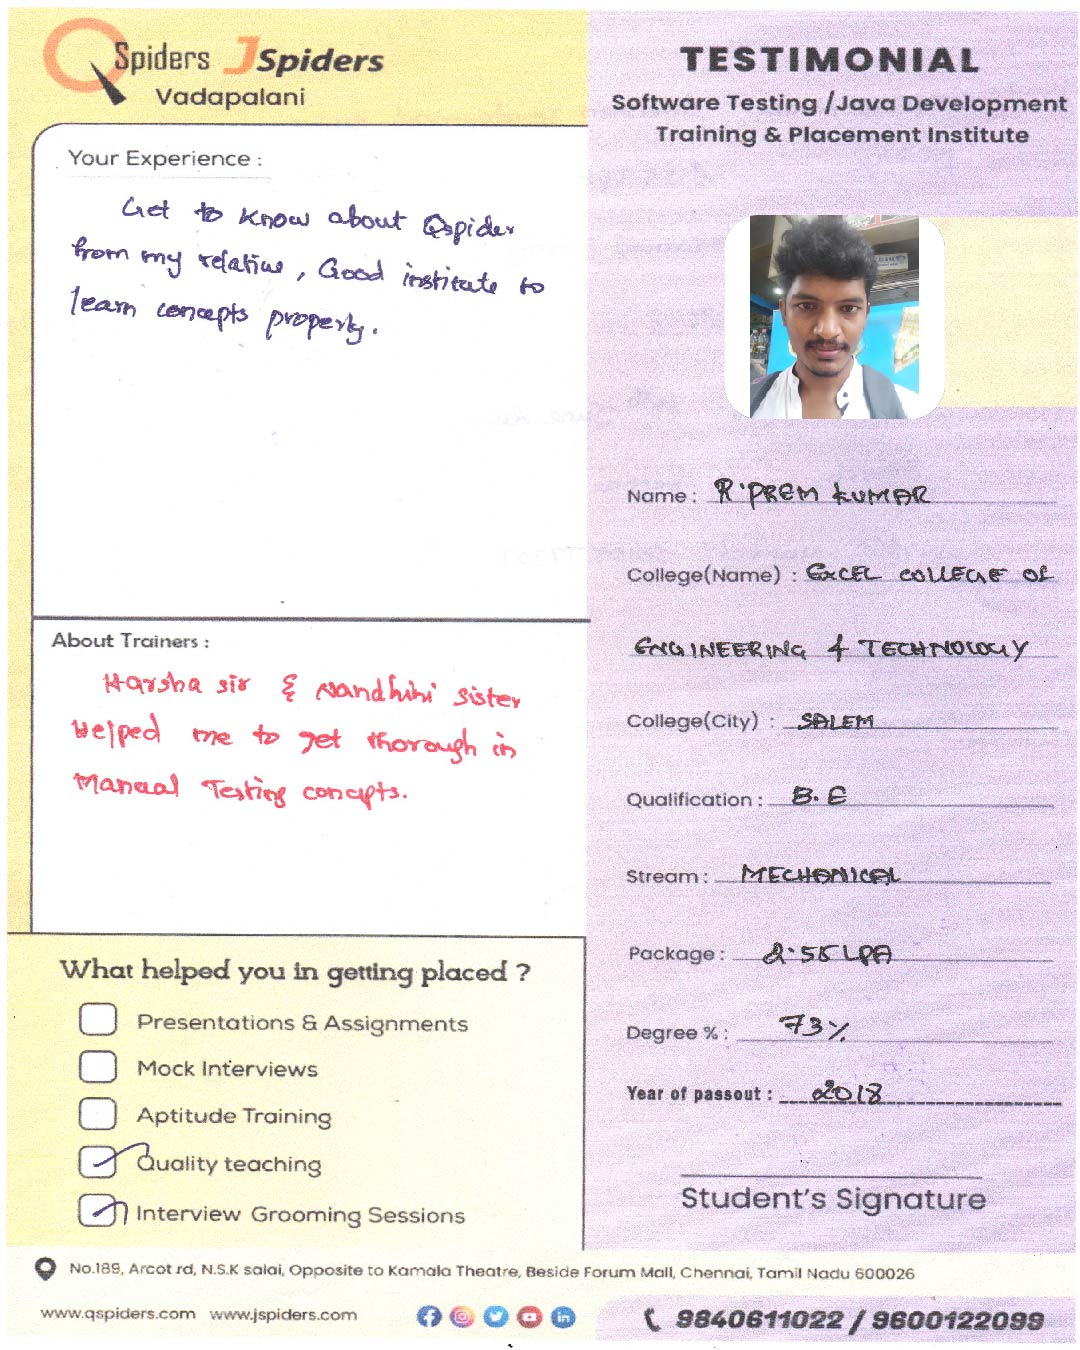 QSpiders JSpiders
Vadapalani
Your Experience :
Get to know about Qspider
from my relative, Good institute to
learn concepts property.
About Trainers :
Harsha sir & Nandhini sister
Helped me to get thorough in
Manual Testing concepts.
What helped you in getting placed ?
Presentations & Assignments
Mock Interviews
Aptitude Training
Quality teaching
Interview Grooming Sessions
TESTIMONIAL
Software Testing /Java Development
Training & Placement Institute
Name : R.PREM KUMAR
College(Name) : EXCEL COLLEGE OF
ENGINEERING & TECHNOLOGY
College(City) : SALEM
Qualification : B.E
Stream : MECHANICAL
Package : 2.55 LPA
Degree % : 73%
Year of passout : 2018
Student's Signature
No.189, Arcot rd, N.S.K salai, Opposite to Kamala Theatre, Beside Forum Mall, Chennai, Tamil Nadu 600026
www.qspiders.com www.jspiders.com
9840611022 / 9600122099